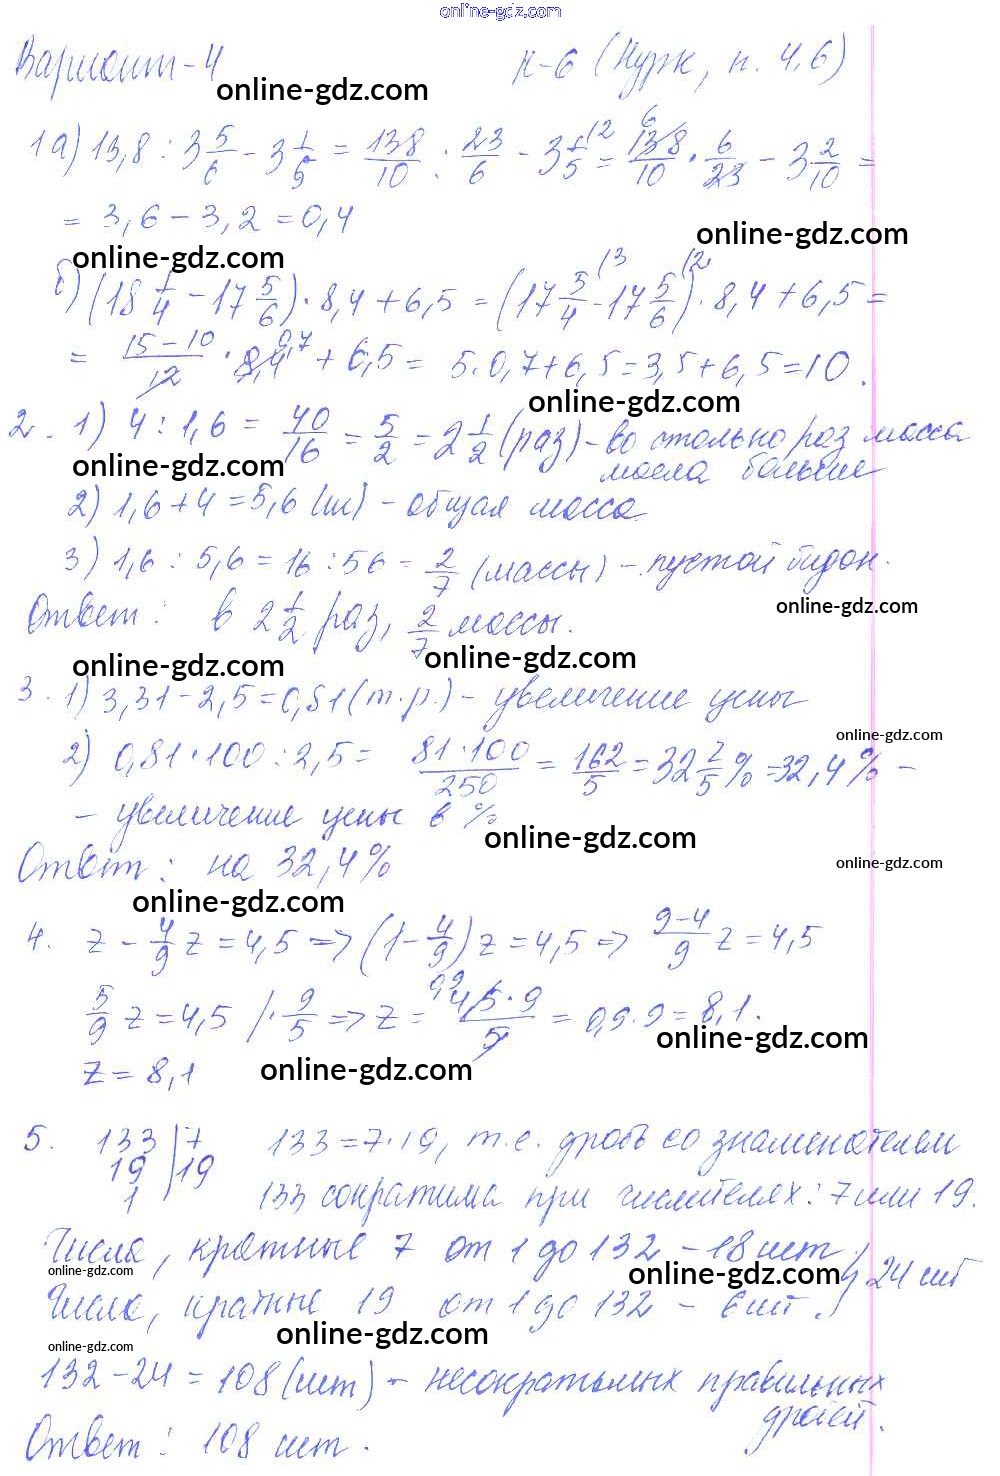 online-gdz.com
Вариант-4 К-6 (Нурк, п. 4,6)
online-gdz.com
1 а) 13,8 : 3 5/6 - 3 1/5 = 138/10 : 23/6 - 3 1/5 \2 = 138/10 \6 · 6/23 - 3 2/10 =
= 3,6 - 3,2 = 0,4
online-gdz.com
online-gdz.com
б) (18 1/4 - 17 5/6) · 8,4 + 6,5 = (17 5/4 \3 - 17 5/6 \2) · 8,4 + 6,5 =
= 15-10/12 · 8,4 0,7 + 6,5 = 5·0,7+6,5=3,5+6,5=10.
online-gdz.com
2. 1) 4 : 1,6 = 40/16 = 5/2 = 2 1/2 (раз) - во столько раз масса
online-gdz.com
масла больше
2) 1,6+4=5,6 (ш) - общая масса
3) 1,6 : 5,6 = 16 : 56 = 2/7 (массы) - пустой бидон.
online-gdz.com
Ответ: в 2 1/2 раз, 2/7 массы.
online-gdz.com
online-gdz.com
3. 1) 3,31-2,5=0,81 (т.р.) - увеличение цены
online-gdz.com
2) 0,81·100:2,5= 81·100/250 = 162/5 = 32 2/5 % = 32,4% -
- увеличение цены в %
online-gdz.com
Ответ: на 32,4%
online-gdz.com
online-gdz.com
4. z - 4/9 z = 4,5 => (1 - 4/9) z = 4,5 => 9-4/9 z = 4,5
5/9 z = 4,5 /· 9/5 => z = 0,9 4,5·9/5 = 0,9·9=8,1.
online-gdz.com
z = 8,1
online-gdz.com
5. 133 | 7 133=7·19, т.е. дробь со знаменателем
19 | 19
1 133 сократима при числителях: 7 или 19.
Числа, кратные 7 от 1 до 132 - 18 шт
online-gdz.com
online-gdz.com
} 24 шт
Числа, кратные 19 от 1 до 132 - 6 шт.
online-gdz.com
online-gdz.com
132-24 = 108 (шт) - несократимых правильных
дробей.
Ответ: 108 шт.